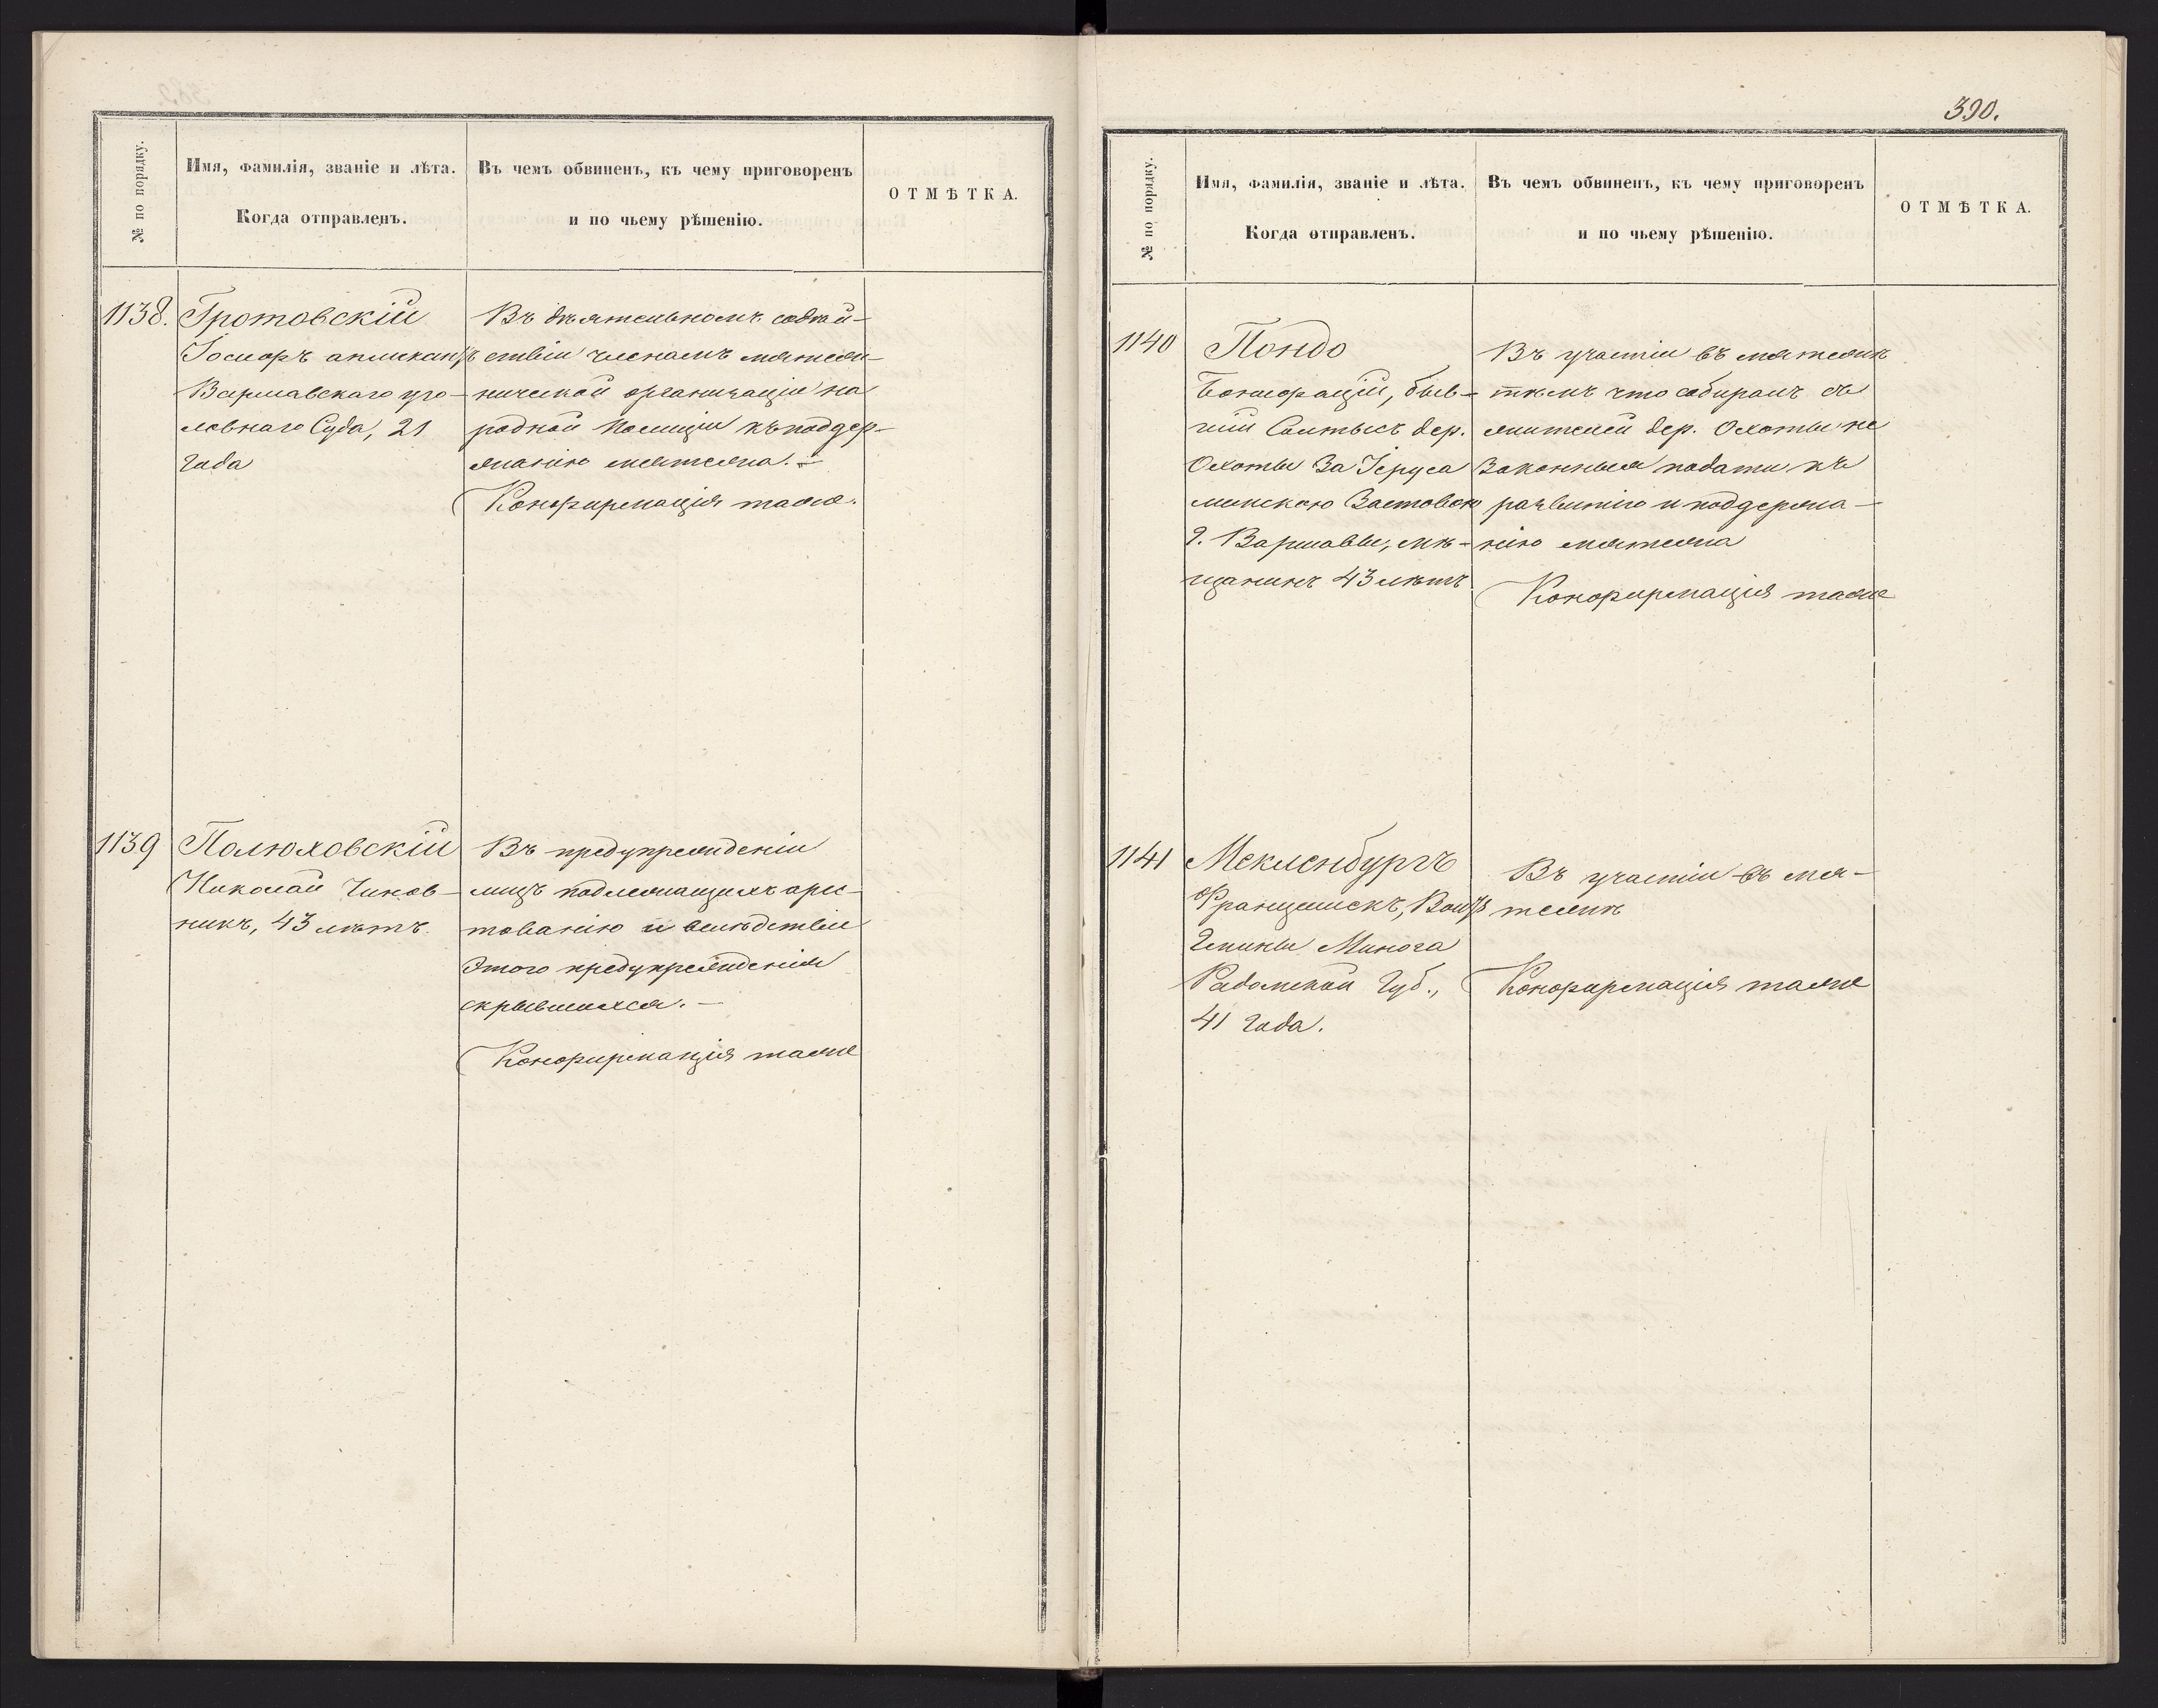 № по порядку.
Имя, фамилія, званіе и лѣта.
Когда отправленъ.
Въ чемъ обвиненъ, къ чему приговоренъ
и по чьему рѣшенію.
ОТМѢТКА.
1138.
Гротовскій
Іосифъ апликантъ
Варшавскаго уго-
ловнаго Суда, 21
года
Въ дѣятельномъ содѣй-
ствіи членамъ мятеж-
нической организаціи на
родной Полиціи къ поддер-
жанію мятежа.-
Конфирмація таже.
1139
Полюховскій
Николай Чинов-
никъ, 43 лѣтъ.
Въ предупрежденіи
лицъ подлежащихъ арес-
тованію и вслѣдствіе
этого предупрежденія
скрывшихся.-
Конфирмація таже
390.
№ по порядку.
Имя, фамилія, званіе и лѣта.
Когда отправленъ.
Въ чемъ обвиненъ, къ чему приговоренъ
и по чьему рѣшенію.
ОТМѢТКА.
1140
Пондо
Бонифацій, быв-
шій Солтысъ дер.
Охоты За Іеруса
лимскою Заставою
г. Варшавы, мѣ-
щанинъ 43 лѣтъ
Въ участіи въ мятежѣ
тѣмъ что собиралъ съ
жителей дер. Охоты не
законныя подати къ
развитію и поддержа-
нію мятежа
Конфирмація таже
1141
Мекленбургъ
Францишекъ, Войтъ
Гмины Минога
Радомской Губ.,
41 года.
Въ участіи въ мя-
тежѣ
Конфирмація таже